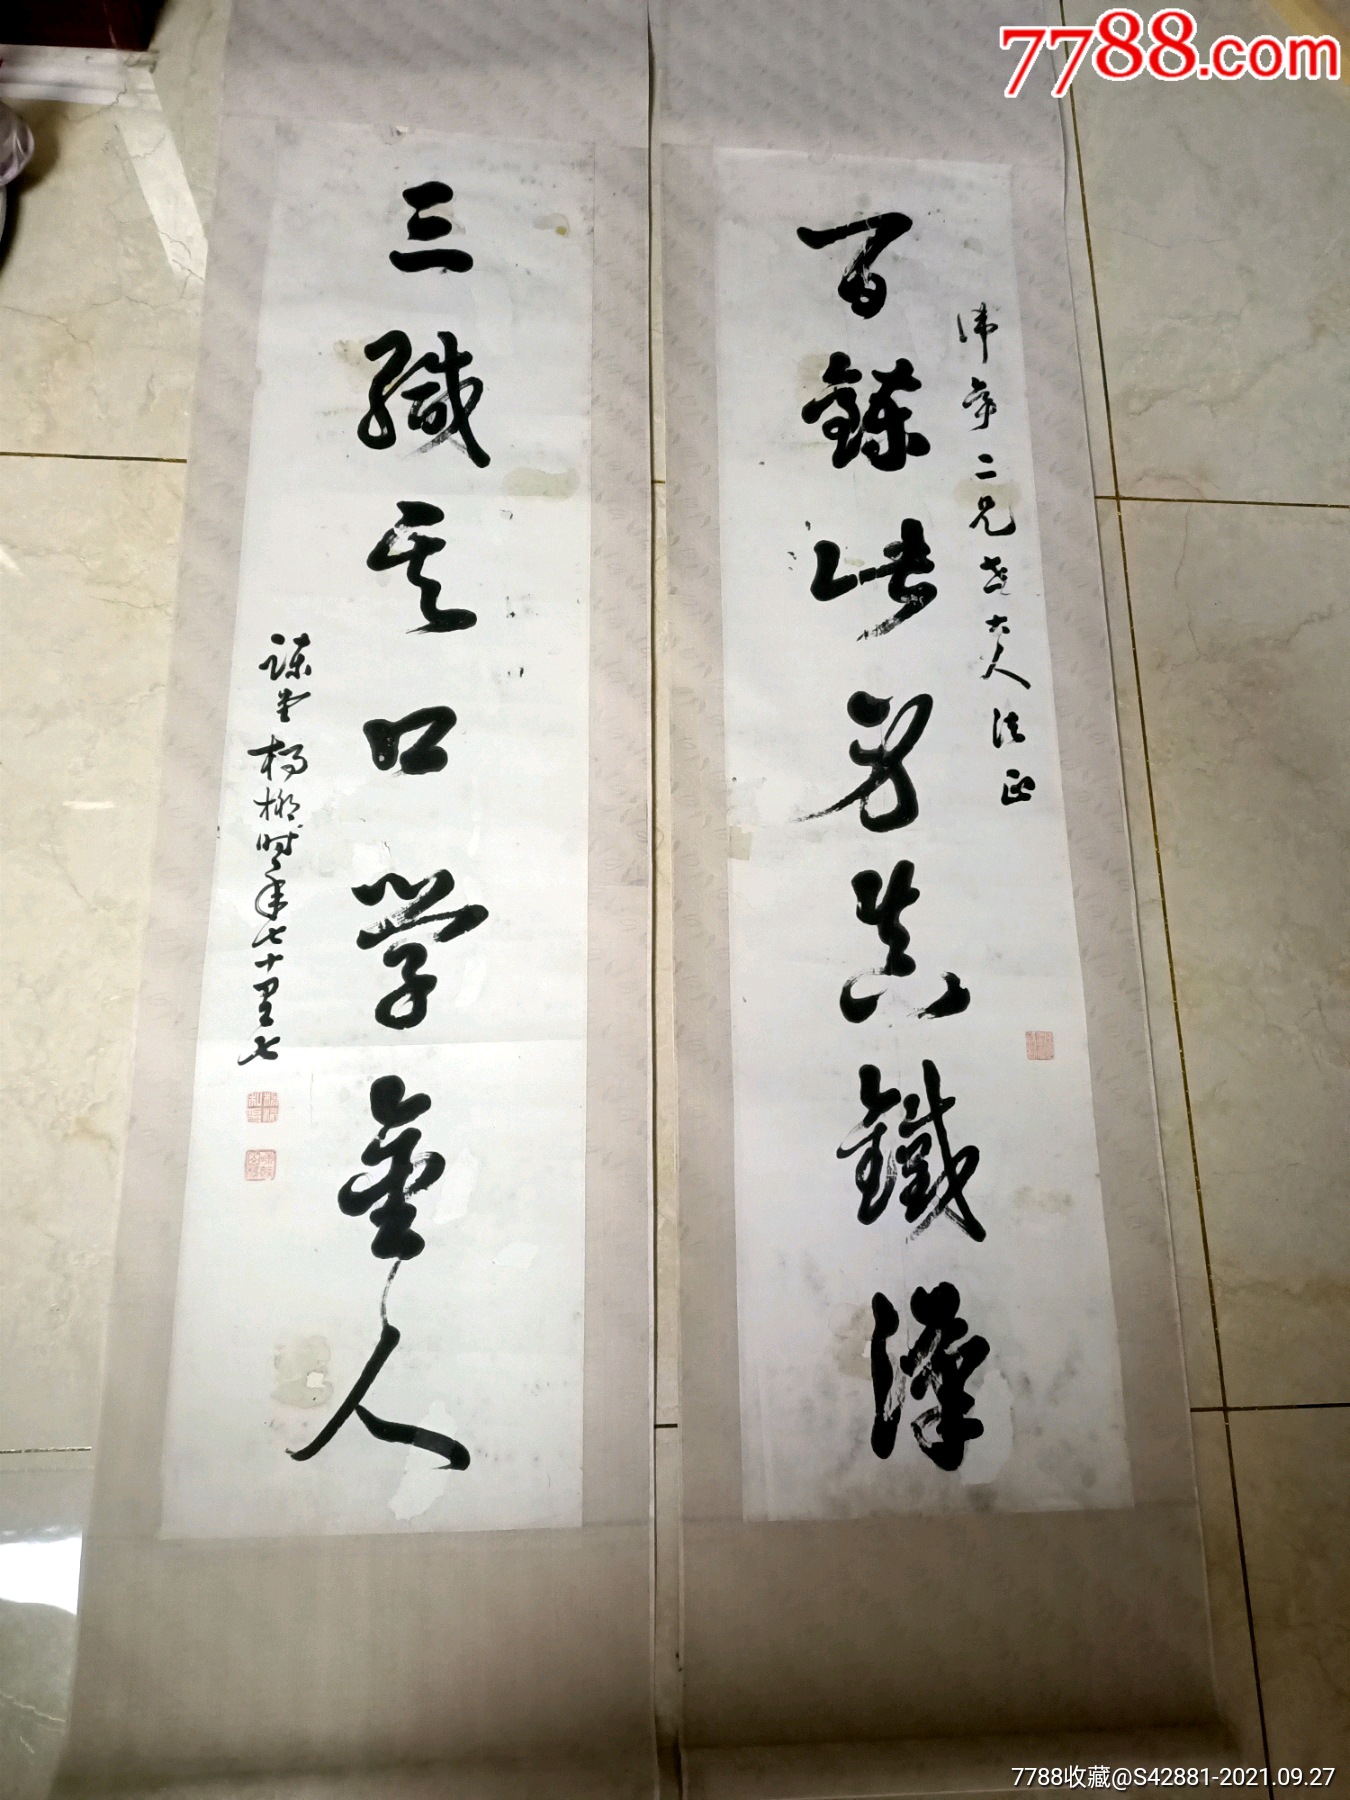 7788.com
百鍊此身真鐵漢
二兄老大人法正
三緘其口學金人
堂楊時年七十七
7788收藏@S42881-2021.09.27